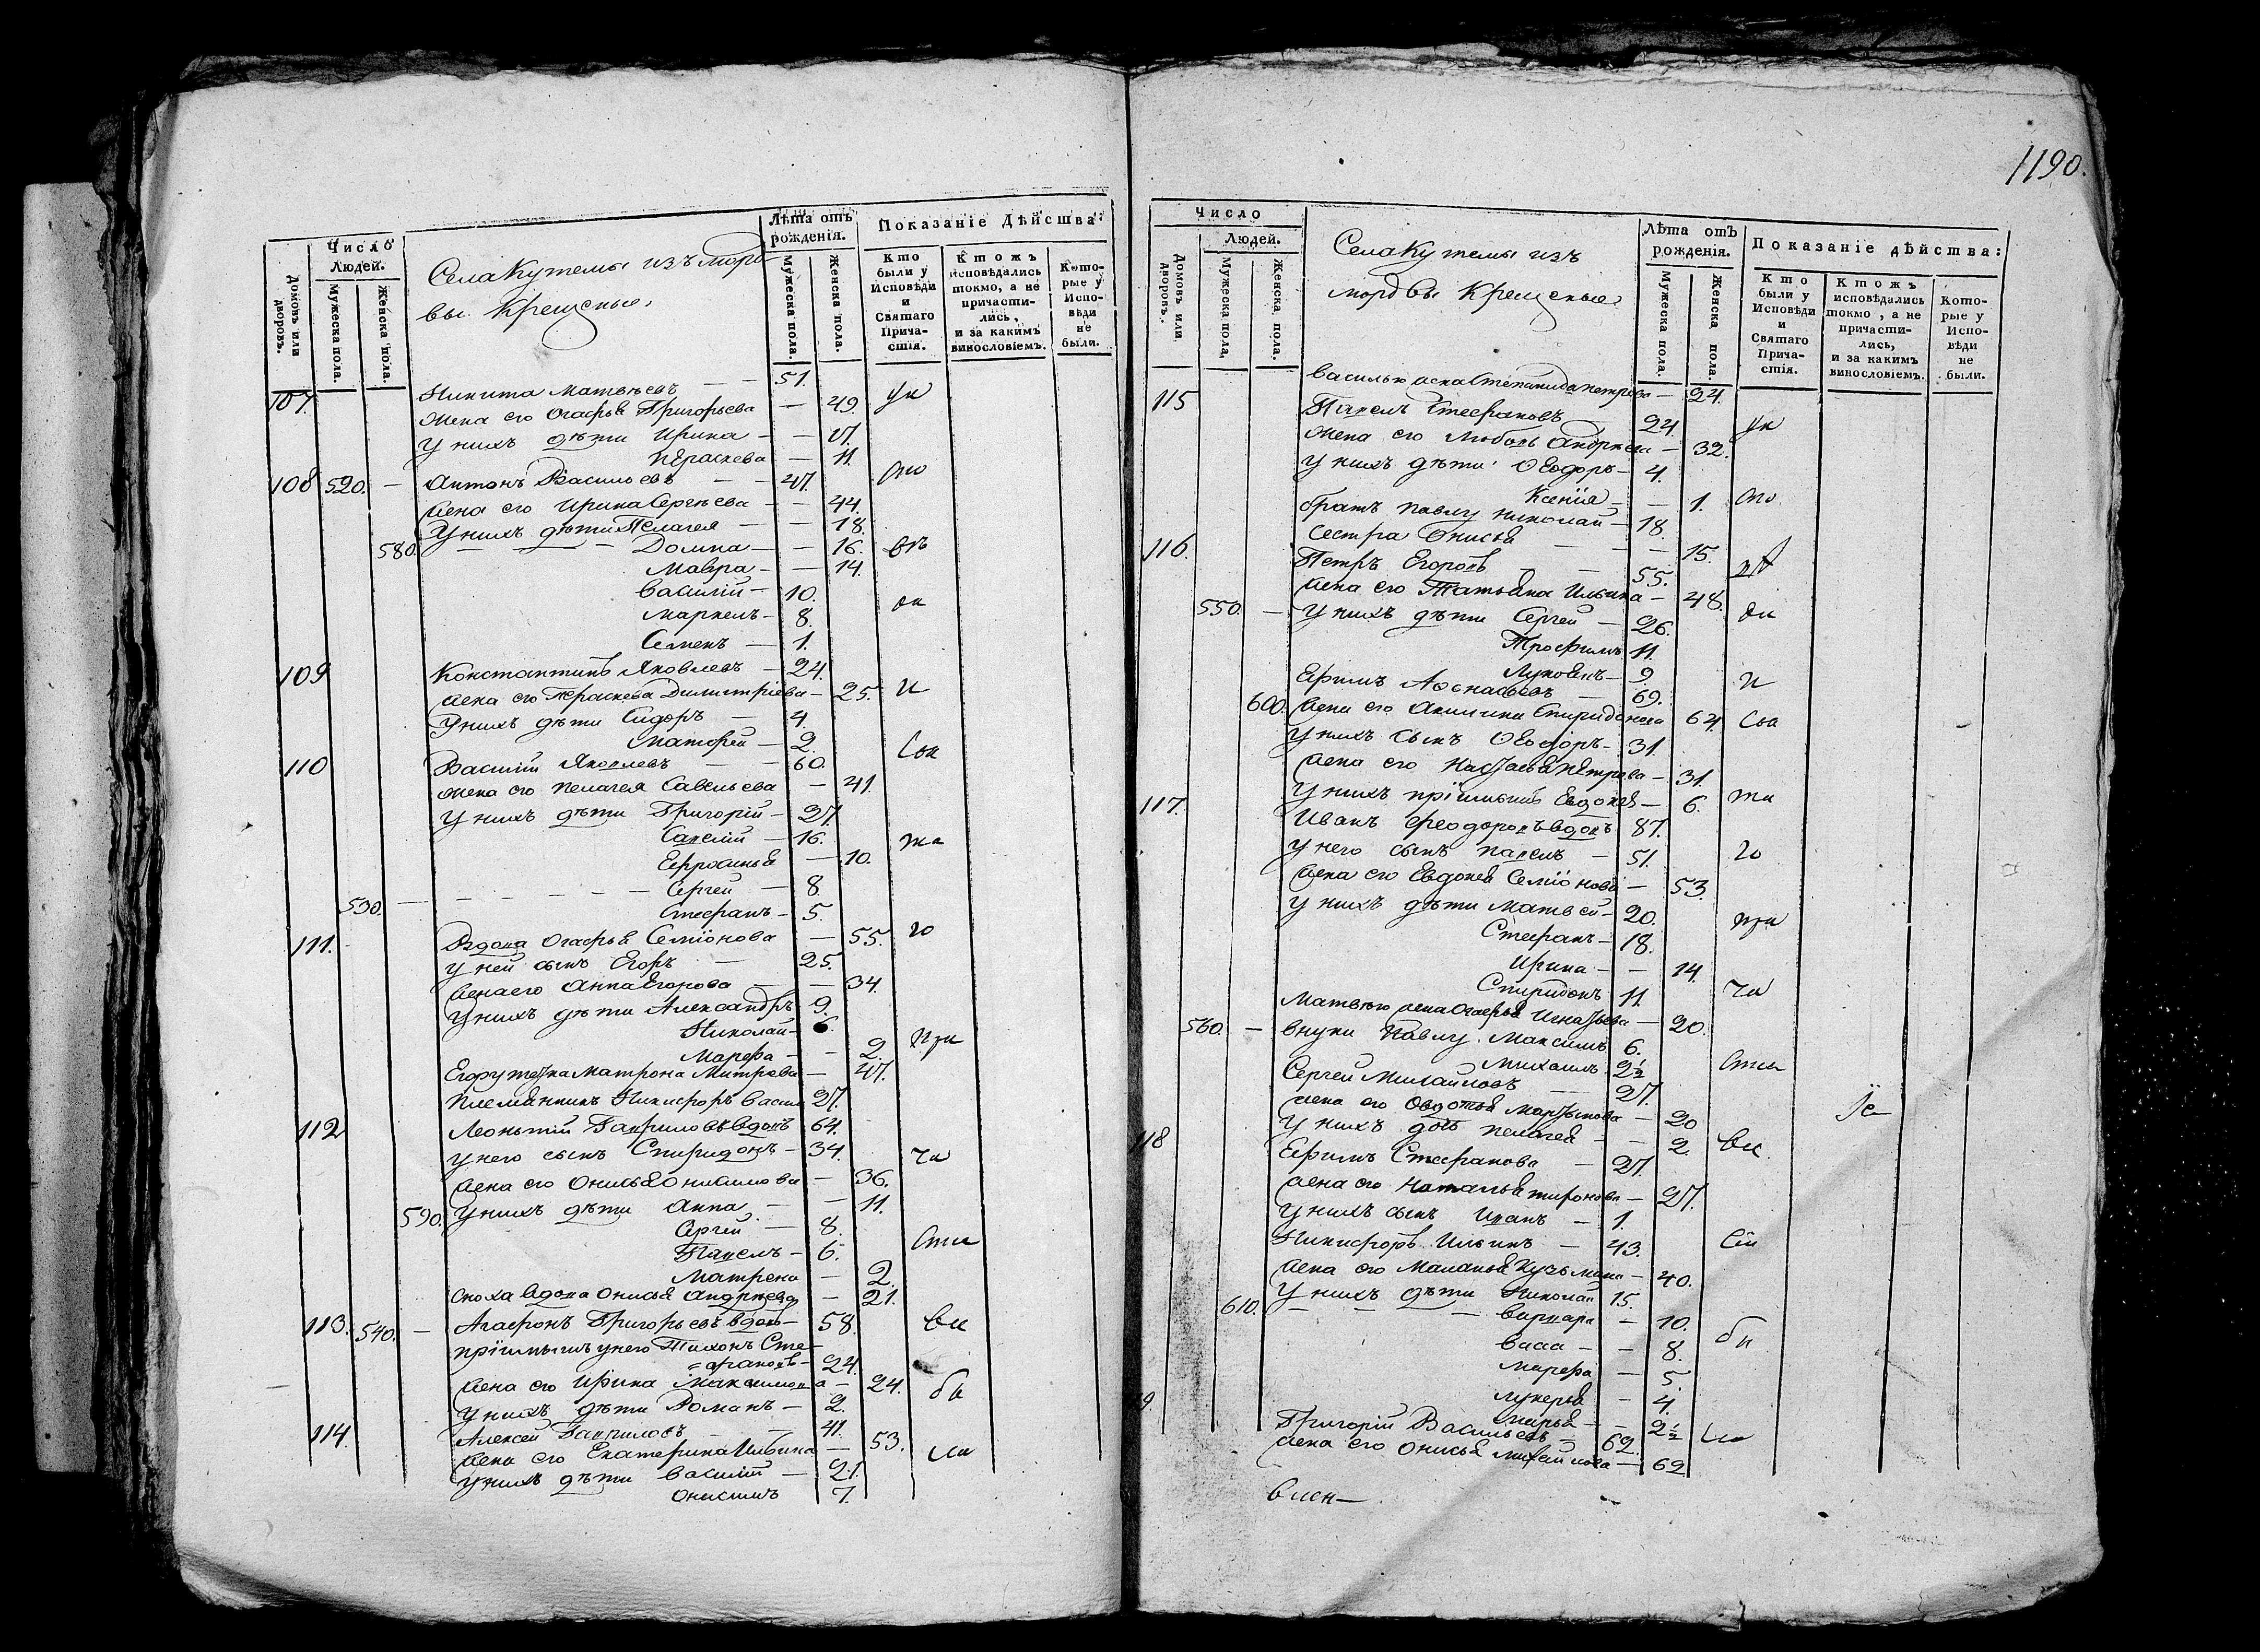 1190.
Число
Людей.
Лѣта отъ рожденія.
Показаніе Дѣйства:
Домовъ или дворовъ.
Мужеска пола.
Женска пола.
Села Кутемы изъ морд-
вы Крещеные.
Мужеска пола.
Женска пола.
Кто были у Исповѣди и Святаго Прича-стія.
Ктожъ исповѣдались токмо, а не причасти-лись, и за какимъ винословіемъ.
Кото-рые у Испо-вѣди не были.
107 Никита Матвѣевъ — 51.
Жена его Огафья Григорьева — 49.
У нихъ дѣти Ирина — — 17.
Параскева — 11.
108 520. — Антонъ Васильевъ — 47.
жена его Ирина Сергѣева — 44.
580. У нихъ дѣти Пелагея — — 18.
Домна — — 16.
Мавра — — 14.
Василій — 10.
Маркелъ — 8.
Семенъ — 1.
109 Константинъ Яковлевъ — 24.
жена его Параскева Димитріева — 25.
У нихъ дѣти Сидоръ — 4.
Матфей — 2.
110 Василій Яковлевъ — — 60.
Жена его Пелагея Савельева — 41.
У нихъ дѣти Григорій — 27.
Савелій — 16.
Ефросинья — 10.
Сергей — 8
530. Стефанъ — 5.
111. Вдова Огафья Семіонова — 55.
у ней сынъ Егоръ — 25.
жена его Анна Егорова — — 34.
У нихъ дѣти Александръ 9.
Николай — 6.
Марфа — — 2.
Егору тетка Матрона Митрева — 47.
Племянникъ Никифоръ Васил 27.
112 Леонтій Гавриловъ вдовъ 64.
у него сынъ Спиридонъ — 34.
жена его Онисья Онисимова — 36.
590. У нихъ дѣти Анна — — 11.
Сергей — 8.
Павелъ — 6.
Матрена — 2.
Сноха вдова Онисья Андреева — 21.
113. 540. — Агафонъ Григорьевъ вдов — 58.
пріимышъ у него Тихонъ Сте-
=фановъ — 24.
жена его Ирина Максимова — 24.
У нихъ дѣти Романъ — 2.
114. Алексей Гавриловъ — — 41.
жена его Екатерина Ильина — 53.
У нихъ дѣти Василій — 21.
Онисимъ 7.
Число
Людей.
Лѣта отъ рожденія.
Показаніе дѣйства:
Домовъ или дворовъ.
Мужеска пола.
Женска пола.
Села Кутемы изъ
мордвы Крещеные
Мужеска пола.
Женска пола.
Кто были у Исповѣди и Святаго Прича-стія.
Ктожъ исповѣдались токмо, а не причасти-лись, и за какимъ винословіемъ.
Кото-рые у Испо-вѣди не были.
Василью жена Степанида Петрова — 24.
115 Павелъ Стефановъ — 24.
Жена его Любовь Андреева — 32.
У нихъ дѣти Ѳеодоръ — 4.
Ксенія — — 1.
братъ Павлу Николай — 18.
Сестра Онисья — — — 15.
116. Петръ Егоровъ — — 55.
жена его Татьяна Ильина — 48.
550. — У нихъ дѣти Сергей — 26.
Трофимъ 11.
Лукоянъ — 9.
Ефимъ Аѳонасьевъ — 69.
600. жена его Акилина Спиридонова 64.
У нихъ сынъ Ѳеодоръ — 31.
жена его Настасья Петрова — 31.
У нихъ пріимышъ Евдокея — 6.
117. Иванъ Феодоровъ вдовъ 87.
у него сынъ Павелъ — 51.
жена его Евдокея Семіонова — 53.
У нихъ дѣти Матвей — 20.
Стефанъ — 18.
Ирина — — 14.
Спиридонъ 11.
Матвею жена Огафья Игнатьева — 20.
560. — внуки Павлу. Максимъ 6.
Михаилъ. 2½
Сергей Михайловъ — 27.
жена его Овдотья Мартынова — 20
У нихъ дочь Пелагея — — 2.
118 Ефимъ Стефанова — 27.
жена его Наталья Миронова — 27.
У нихъ сынъ Иванъ — 1.
Никифоръ Ильинъ — 43.
жена его Маланья Кузьмина — 40.
У нихъ дѣти Николай 15.
610. Варвара — 10.
Васса — — 8.
Марфа — 5.
Лукерья — 4.
Марья — — 2½
9. Григорій Васильевъ — 62.
жена его Онисья Михайлова — 62